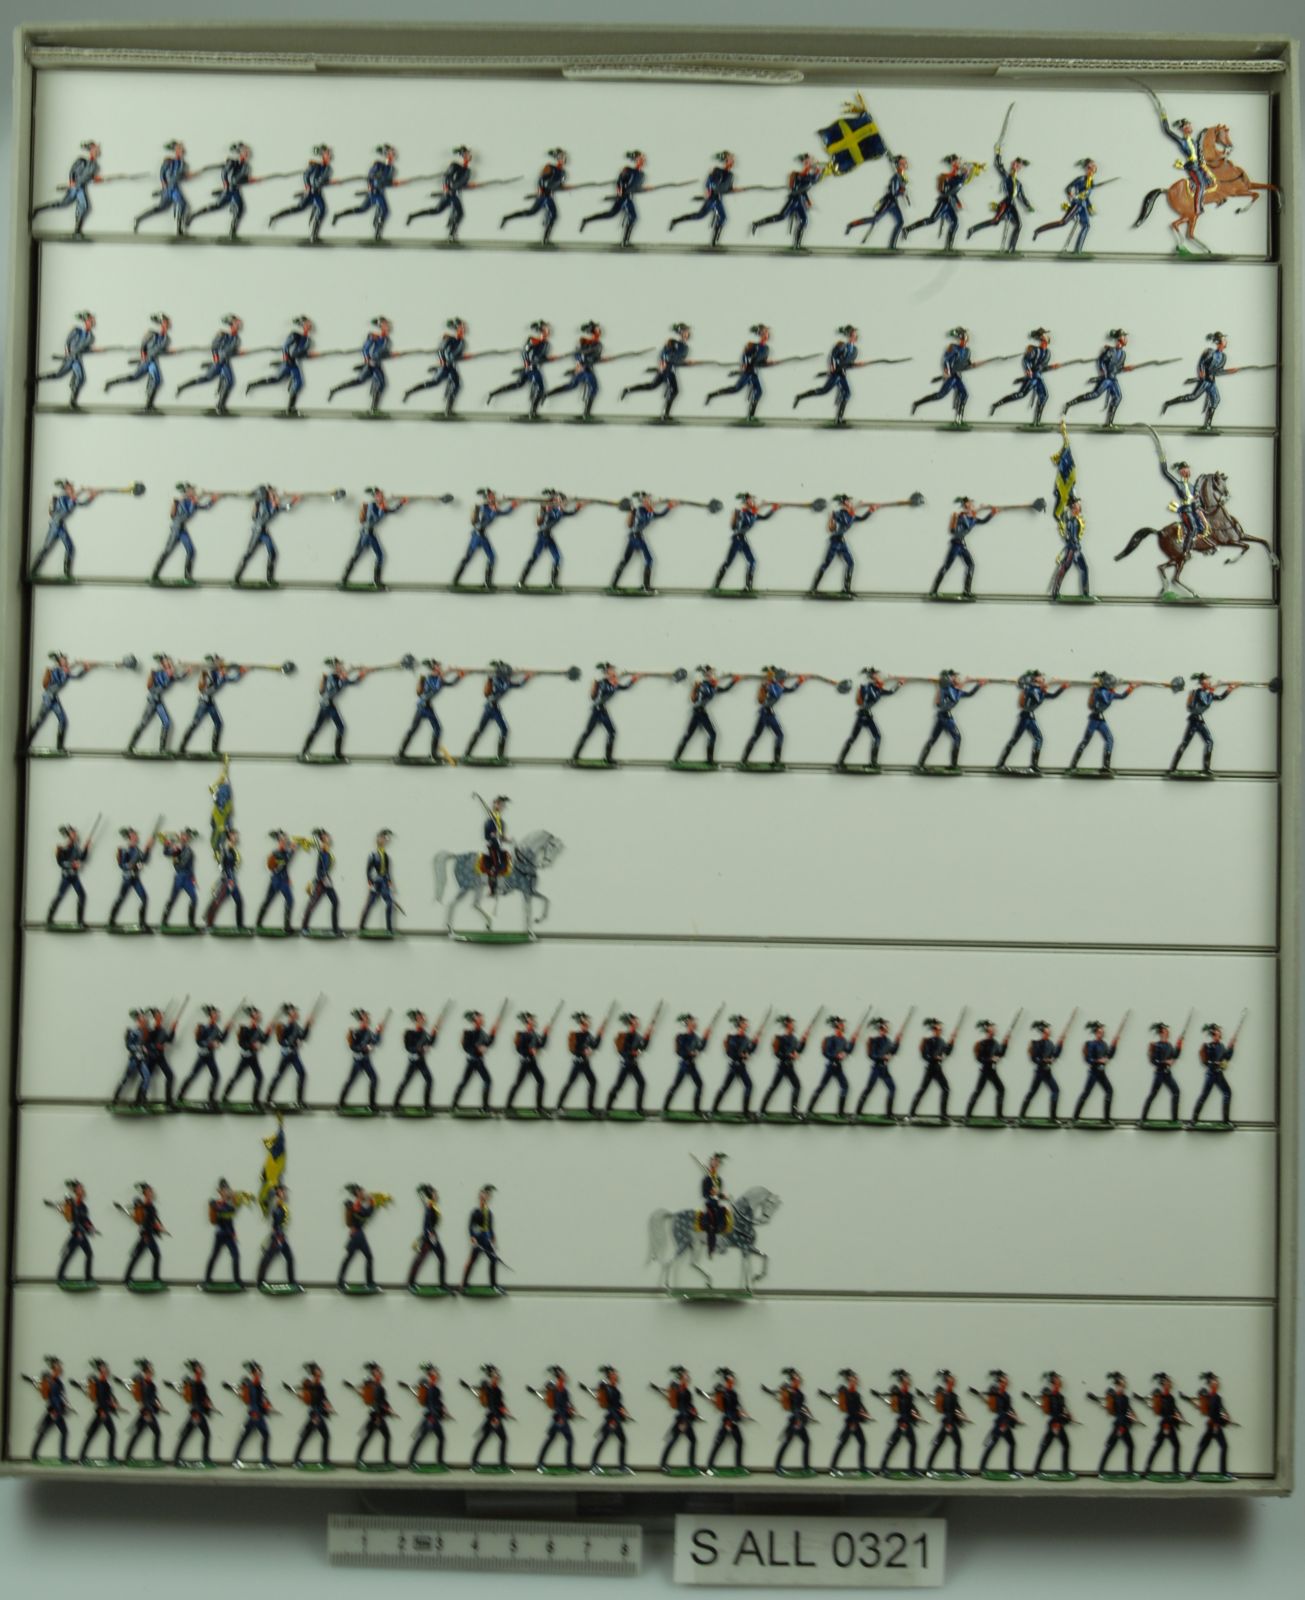 1 2 3 4 5 6 7 8
S ALL 0321